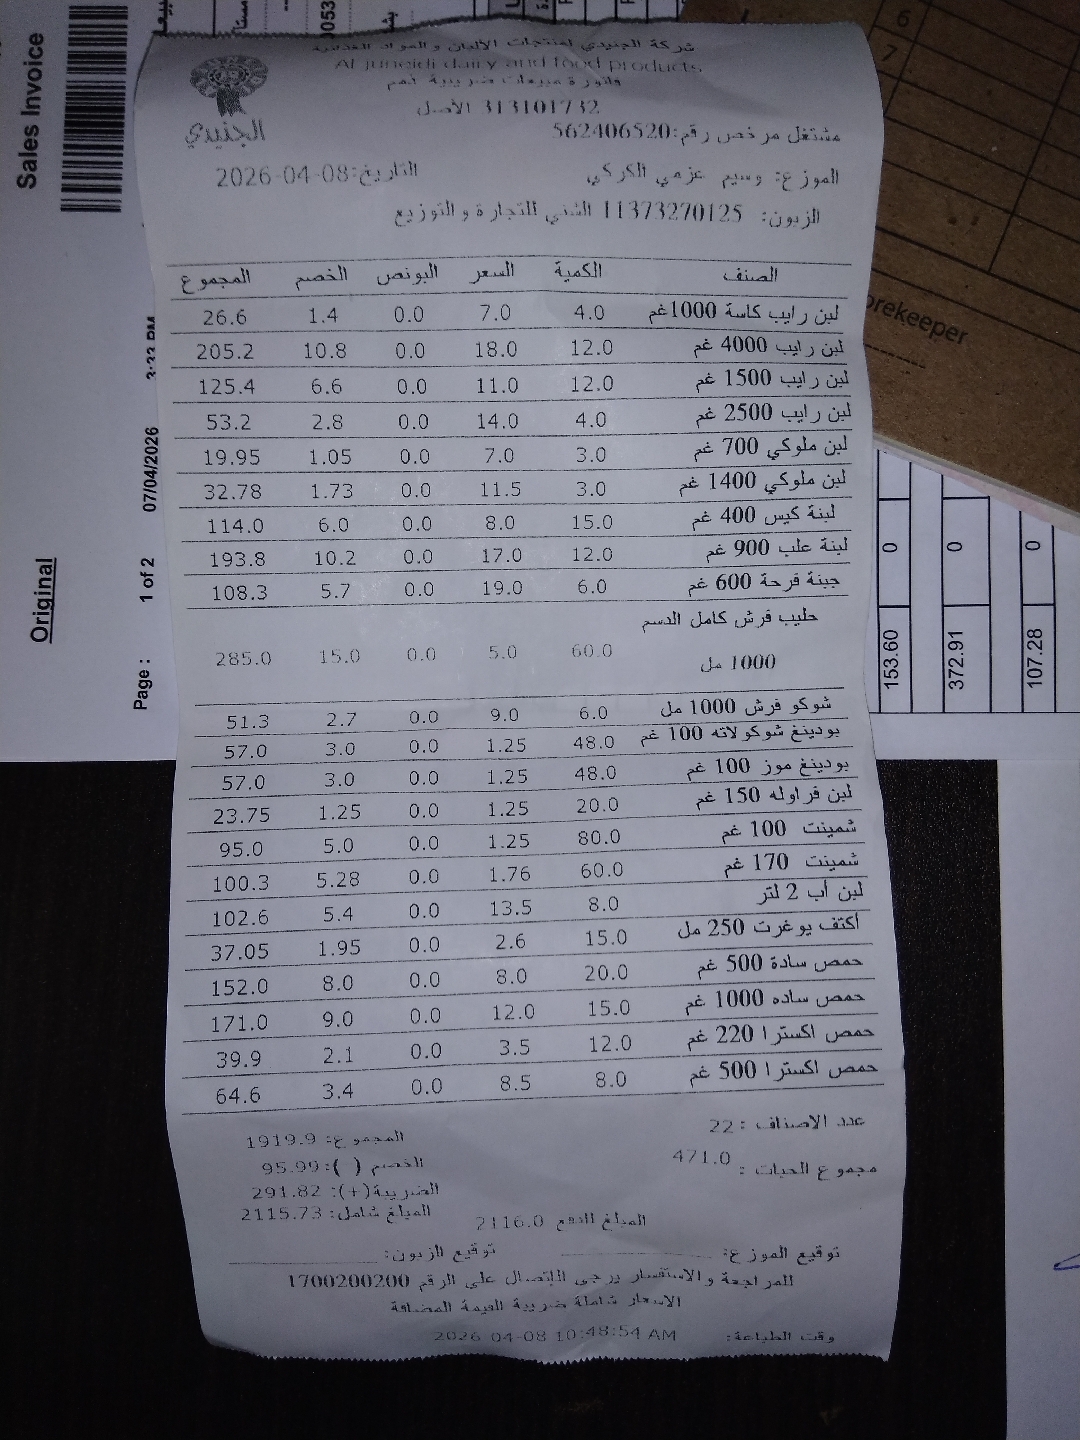 شركة الجنيدي لمنتجات الألبان والمواد الغذائية
Al juneidi dairy and food products
فاتورة مبيعات ضريبية رقم
313101732 الأصل
الجنيدي
مشتغل مرخص رقم:562406520
الموزع: وسيم عزمي الكركي التاريخ:2026-04-08
الزبون: 11373270125 الشني للتجارة و التوزيع
الصنف الكمية السعر البونص الخصم المجموع
لبن رايب كاسة 1000غم 4.0 7.0 0.0 1.4 26.6
لبن رايب 4000 غم 12.0 18.0 0.0 10.8 205.2
لبن رايب 1500 غم 12.0 11.0 0.0 6.6 125.4
لبن رايب 2500 غم 4.0 14.0 0.0 2.8 53.2
لبن ملوكي 700 غم 3.0 7.0 0.0 1.05 19.95
لبن ملوكي 1400 غم 3.0 11.5 0.0 1.73 32.78
لبنة كيس 400 غم 15.0 8.0 0.0 6.0 114.0
لبنة علب 900 غم 12.0 17.0 0.0 10.2 193.8
جبنة فرحة 600 غم 6.0 19.0 0.0 5.7 108.3
حليب فرش كامل الدسم
1000 مل 60.0 5.0 0.0 15.0 285.0
شوكو فرش 1000 مل 6.0 9.0 0.0 2.7 51.3
بودينغ شوكولاته 100 غم 48.0 1.25 0.0 3.0 57.0
بودينغ موز 100 غم 48.0 1.25 0.0 3.0 57.0
لبن فراوله 150 غم 20.0 1.25 0.0 1.25 23.75
شمينت 100 غم 80.0 1.25 0.0 5.0 95.0
شمينت 170 غم 60.0 1.76 0.0 5.28 100.3
لبن أب 2 لتر 8.0 13.5 0.0 5.4 102.6
أكتف يوغرت 250 مل 15.0 2.6 0.0 1.95 37.05
حمص سادة 500 غم 20.0 8.0 0.0 8.0 152.0
حمص ساده 1000 غم 15.0 12.0 0.0 9.0 171.0
حمص اكسترا 220 غم 12.0 3.5 0.0 2.1 39.9
حمص اكسترا 500 غم 8.0 8.5 0.0 3.4 64.6
عدد الاصناف : 22 المجموع: 1919.9
مجموع الحبات : 471.0 الخصم ( ): 95.99
الضريبة(+): 291.82
المبلغ شامل: 2115.73
المبلغ للدفع 2116.0
توقيع الموزع: توقيع الزبون:
للمراجعة والاستفسار يرجى الإتصال على الرقم 1700200200
الاسعار شاملة ضريبة القيمة المضافة
وقت الطباعة: 2026-04-08 10:48:54 AM
Sales Invoice
Original
Page : 1 of 2 07/04/2026
orekeeper
6
7
0
0
0
153.60
372.91
107.28